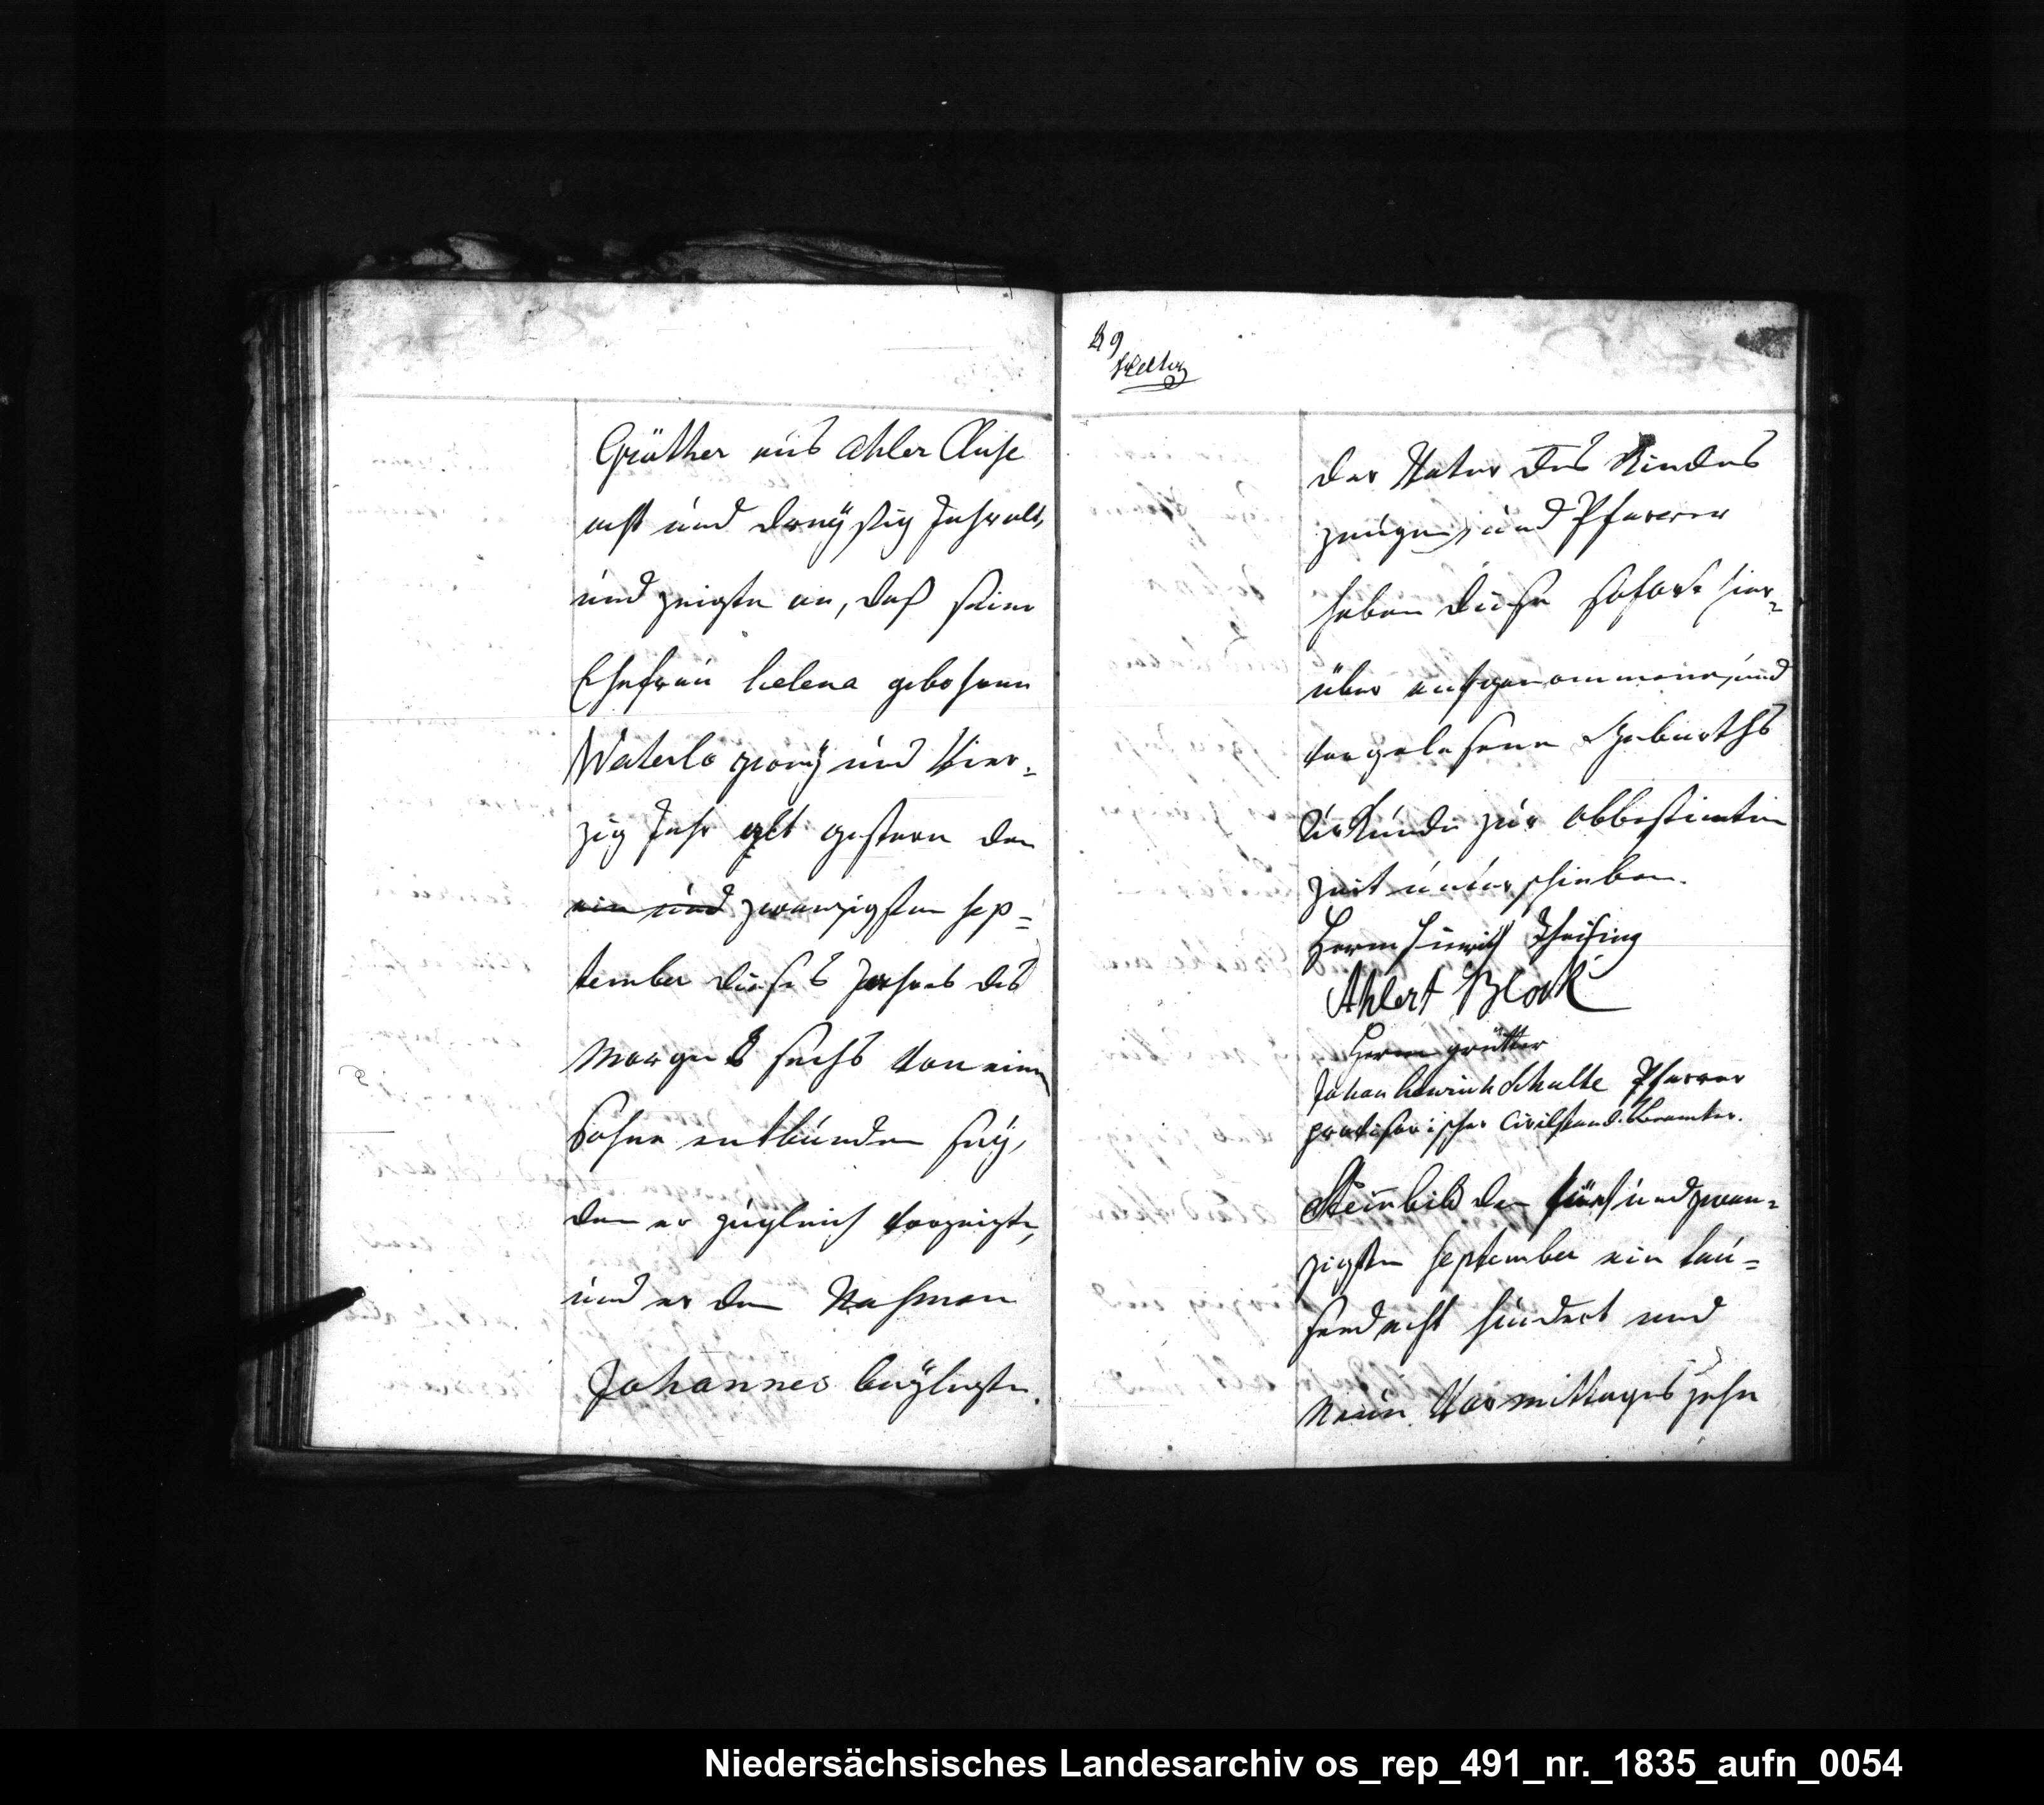 Grüther aus Ahler Cluse
acht und dreÿßig Jahr alt,
und zeigte an, daß seine
Ehefrau helena gebohrene
Waterlo zweÿ und Vier=
zig Jahr alt gestern den
ein und zwanzigsten Sep=
tember dieses Jahres des
Morgens sechs von einem
Sohne entbunden seÿ,
den er zugleich vorzeigte,
und er den Nahmen
Johannes beÿlegte.
29
der Vater des Kindes
zeugen, und Pfarrer
haben diese sofort hier=
über aufgenommene, und
vorgelesene Geburths
Urkunde zur obbestimten
Zeit unterschieben.
Herm Hinrich Theising
Ahlert Block
Herm grütter
Johan henrich Schulte Pfarrer
provisorischer Civilstands Beamter.
Steinbild den fünf und zwan=
zigsten September ein tau=
send acht hundert und
Neun Vormittages zehn
Niedersächsisches Landesarchiv os_rep_491_nr._1835_aufn_0054